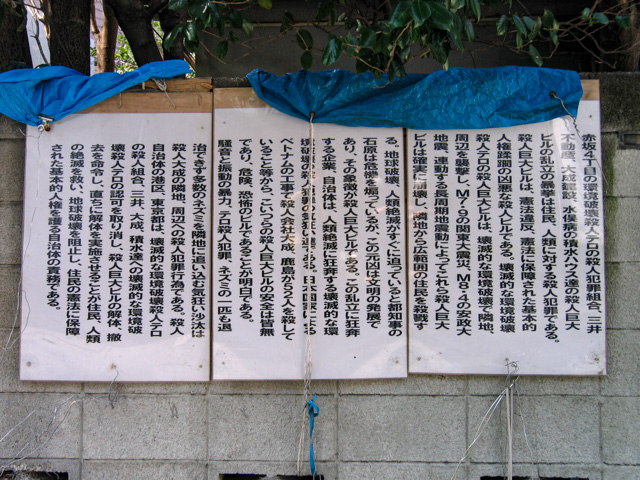 赤坂4丁目の環境破壊殺人テロの殺人犯罪組合、三井
不動産、大成建設、水俣病の積水ハウス達の殺人巨大
ビルの乱立の暴挙は住民、人類に対する殺人犯罪である。
殺人巨大ビルは、憲法違反、憲法に保障された基本的
人権蹂躙の凶悪な殺人ビルである。壊滅的な環境破壊
殺人テロの殺人巨大ビルは、壊滅的な環境破壊で隣地、
周辺を襲撃し、M7・9の関東大震災、M8・4の安政大
地震、連動する長周期地震動によってこれら殺人巨大
ビルは確実に崩壊し、隣地から広範囲の住民を殺戮す
る。地球破壊、人類絶滅がすぐに迫っていると都知事の
石原は危惧を煽っているが、この元凶は文明の発展で
あり、その象徴が殺人巨大ビルである。この乱立に狂奔
する企業、自治体は、人類絶滅に狂奔する壊滅的な環
ベトナムの工事で殺人会社大成、鹿島が52人を殺して
いること等から、こいつらの殺人巨大ビルの安全は皆無
であり、危険、恐怖のビルであることが明白である。
騒音と振動の暴力、テロ殺人犯罪、ネズミの一匹も退
治できず多数のネズミを隣地に追い込む気狂い沙汰は
殺人大成の隣地、周辺への殺人犯罪行為である。殺人
自治体の港区、東京都は、壊滅的な環境破壊殺人テロ
の殺人組合、三井、大成、積水達への壊滅的な環境破
壊殺人テロの認可を取り消し、殺人巨大ビルの解体、撤
去を命令し、直ちに解体を実施させることが住民、人類
の絶滅を救い、地球破壊を阻止し、住民の憲法に保障
された基本的人権を護る自治体の責務である。